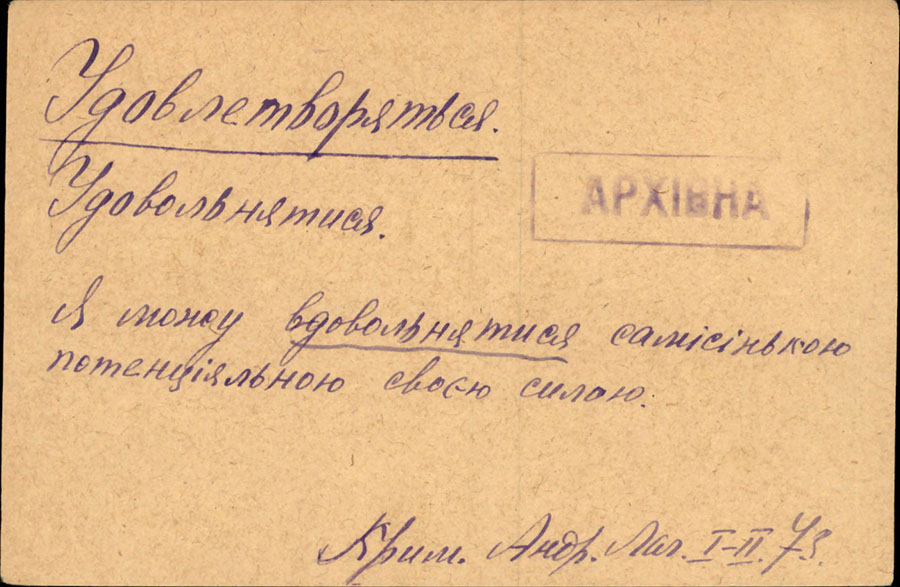 Удовлетворяться.
Удовольнятися.
АРХІВНА
Я можу вдовольнятися самісінькою
потенціяльною своєю силою.
Крим. Андр. Лаг. I–II. 73